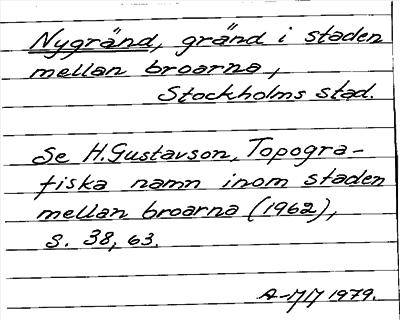 Nygränd, gränd i staden
mellan broarna,
Stockholms stad.
Se H. Gustavson, Topogra-
fiska namn inom staden
mellan broarna (1962),
s. 38, 63.
1979.